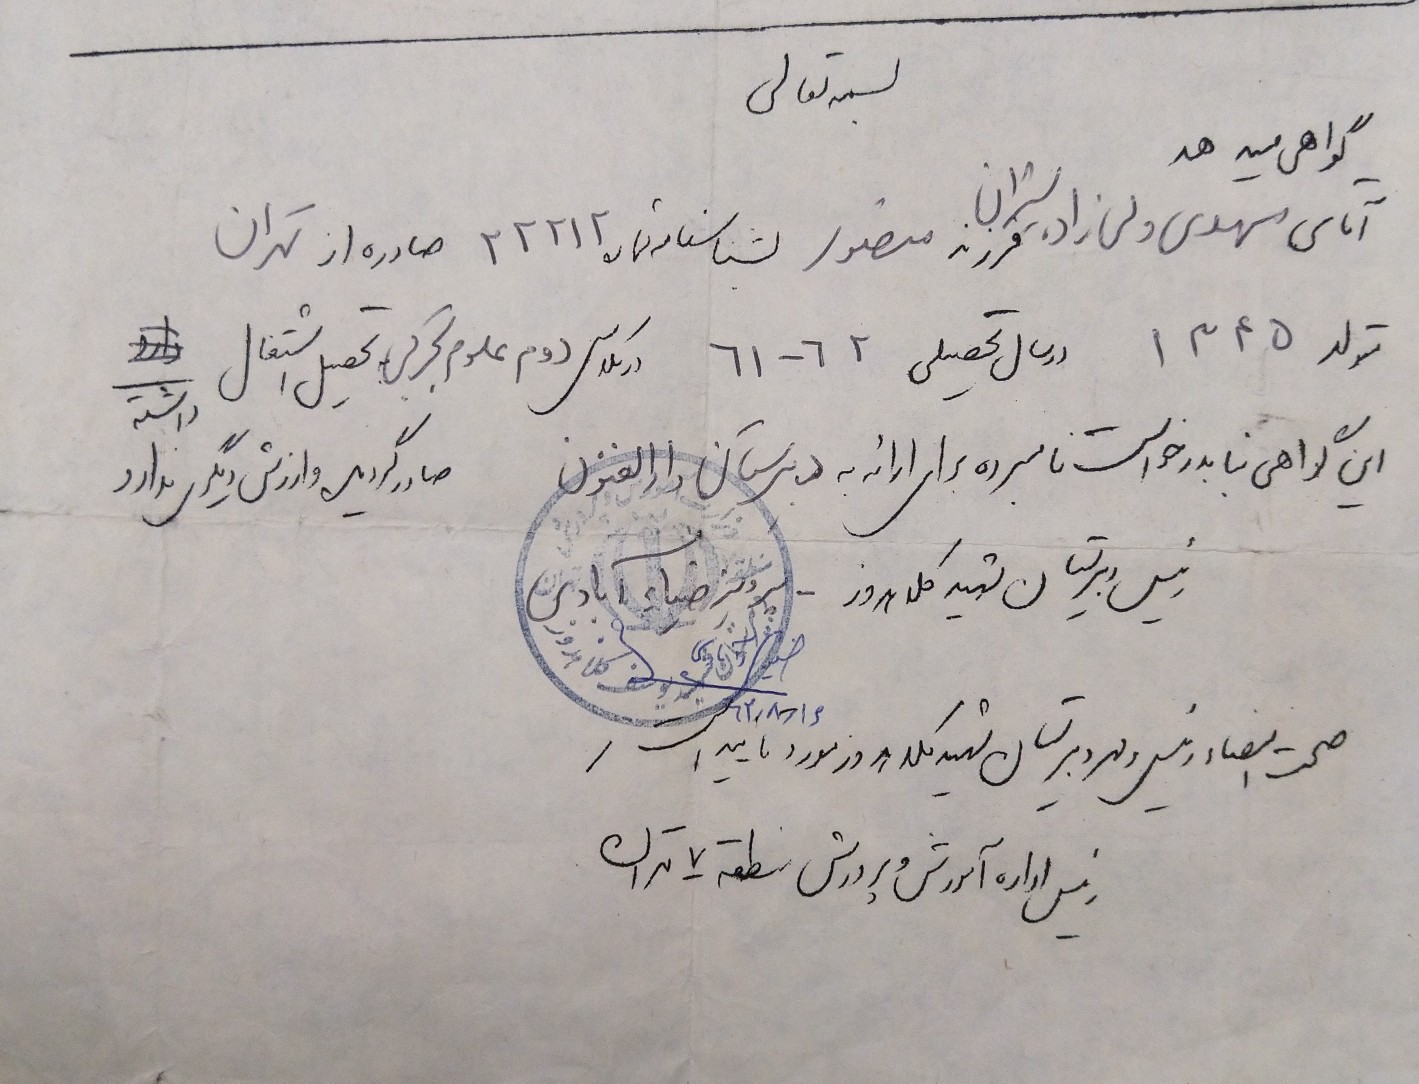 بسمه تعالی
گواهی میدهد
آقای مهدی ولی زاده شتران فرزند منصور بشناسنامه شماره ۲۲۲۱۲ صادره از تهران
تولد ۱۳۴۵ در سال تحصیلی ۶۲-۶۱ در کلاس دوم علوم تجربی بتحصیل اشتغال
داشته
این گواهی بنا بدرخواست نامبرده برای ارائه به دبیرستان دارالفنون صادر گردید و ارزش دیگری ندارد
رئیس دبیرستان شهید کلاهدوز - پرویز ضیاء آبادی
۶۲/۸/۱۶
صحت امضاء رئیس و مهر دبیرستان شهید کلاهدوز مورد تایید است /
رئیس اداره آموزش و پرورش منطقه ۷ تهران